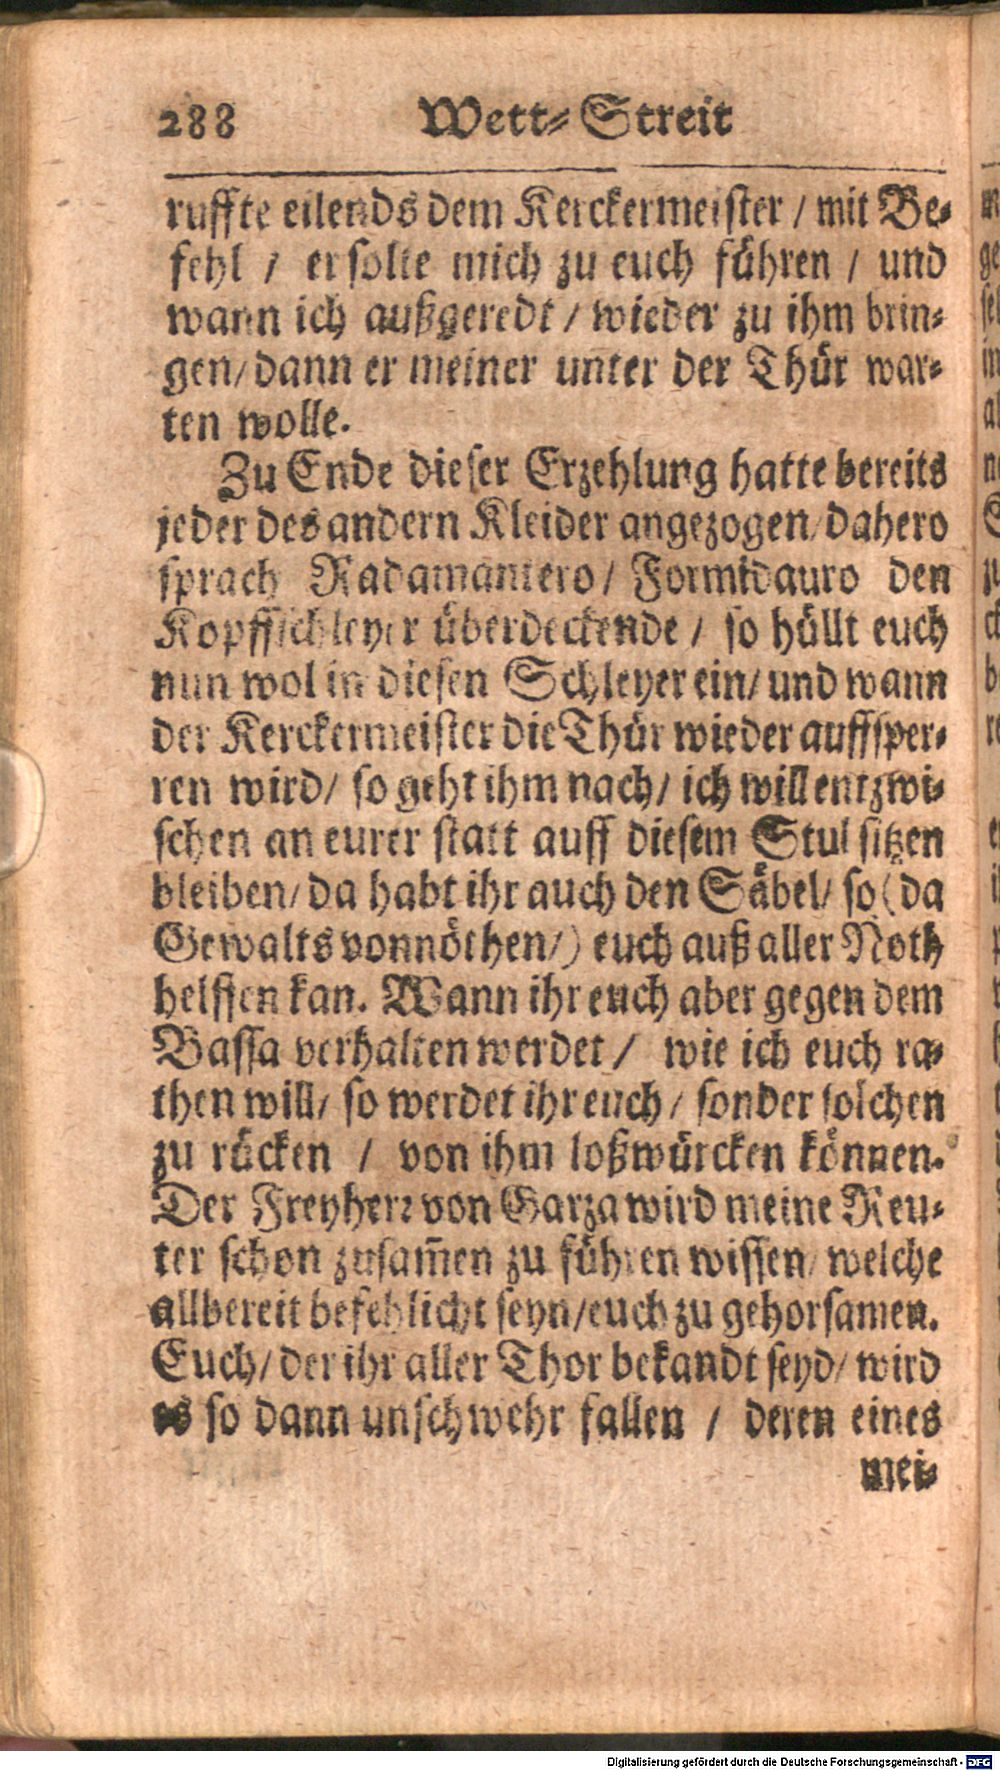 288 Wett-Streit
ruffte eilends dem Kerckermeister / mit Be-
fehl / er solte mich zu euch führen / und
wann ich außgeredt / wieder zu ihm brin-
gen / dann er meiner unter der Thür war-
ten wolle.
Zu Ende dieser Erzehlung hatte bereits
jeder des andern Kleider angezogen / dahero
sprach Radamantero / Formidauro den
Kopffschleyer überdeckende / so hüllt euch
nun wol in diesen Schleyer ein / und wann
der Kerckermeister die Thür wieder auffsper-
ren wird / so geht ihm nach / ich will entzwi-
schen an eurer statt auff diesem Stul sitzen
bleiben / da habt ihr auch den Säbel / so (da
Gewalts vonnöthen /) euch auß aller Noth
helffen kan. Wann ihr euch aber gegen dem
Bassa verhalten werdet / wie ich euch ra-
then will / so werdet ihr euch / sonder solchen
zu rücken / von ihm loßwürcken können.
Der Freyherr von Garza wird meine Reu-
ter schon zusam̃en zu führen wissen / welche
allbereit befehlicht seyn / euch zu gehorsamen.
Euch / der ihr aller Thor bekandt seyd / wird
es so dann unschwehr fallen / deren eines
mei-
Digitalisierung gefördert durch die Deutsche Forschungsgemeinschaft - DFG